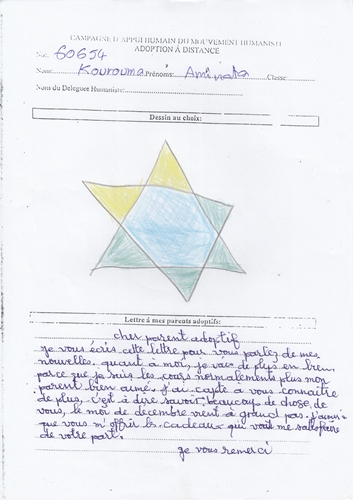 CAMPAGNE D'APPUI HUMAIN DU MOUVEMENT HUMANISTE
ADOPTION À DISTANCE
No: 60654
Nom: Kourouma Prénoms: Aminata Classe
Nom du Deleguee Humaniste:
Dessin au choix:
Lettre à mes parents adoptifs:
cher parent adoptif
je vous écris cette lettre pour vous parlez de mes
nouvelles. quant à moi, je vais de plus en bien
parce que je suis les cours normalements plus mon
parent bien aimé. j'ai à vous connaître
de plus, c'est à dire savoir beaucoup de chose de
vous, le moi de decembre vient à grand pas. j'aimerais
que vous m'offrir les cadeaux qui vont me satisfaire
de votre part.
je vous remerci